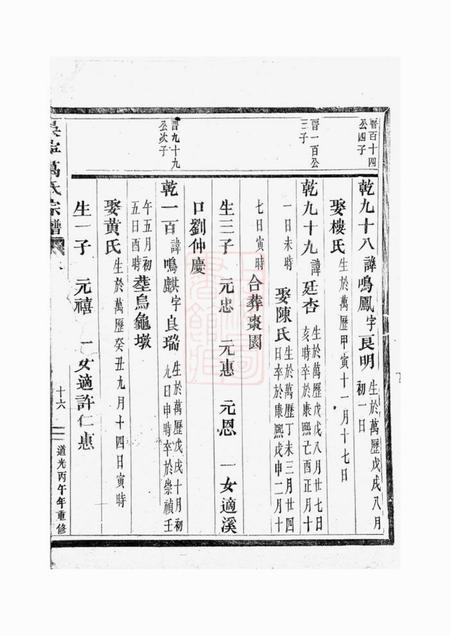 晋百十四
公四子
乾九十八諱鳴鳳字良明生於萬歷戊戌八月
初一日
娶樓氏生於萬歷甲寅十一月十七日
晋一百公
三子
乾九十九諱廷杏生於萬歷戊戌八月廿七日
亥時卒於康熙己酉正月十
一日未時娶陳氏生於萬歷丁未三月廿四
日卒於康熙戊申二月十
七日寅時合葬棗園
生三子元忠元惠元恩一女適溪
口劉仲慶
晋九十九
公次子
乾一百諱鳴麒字良瑞生於萬歷戊戌十月初
九日申時卒於崇禎壬
午五月初
五日酉時塟烏龜墩
娶黄氏生於萬歷癸丑九月十四日寅時
生一子元禧一女適許仁惠
吳寧葛氏宗譜
十六
道光丙午年重修